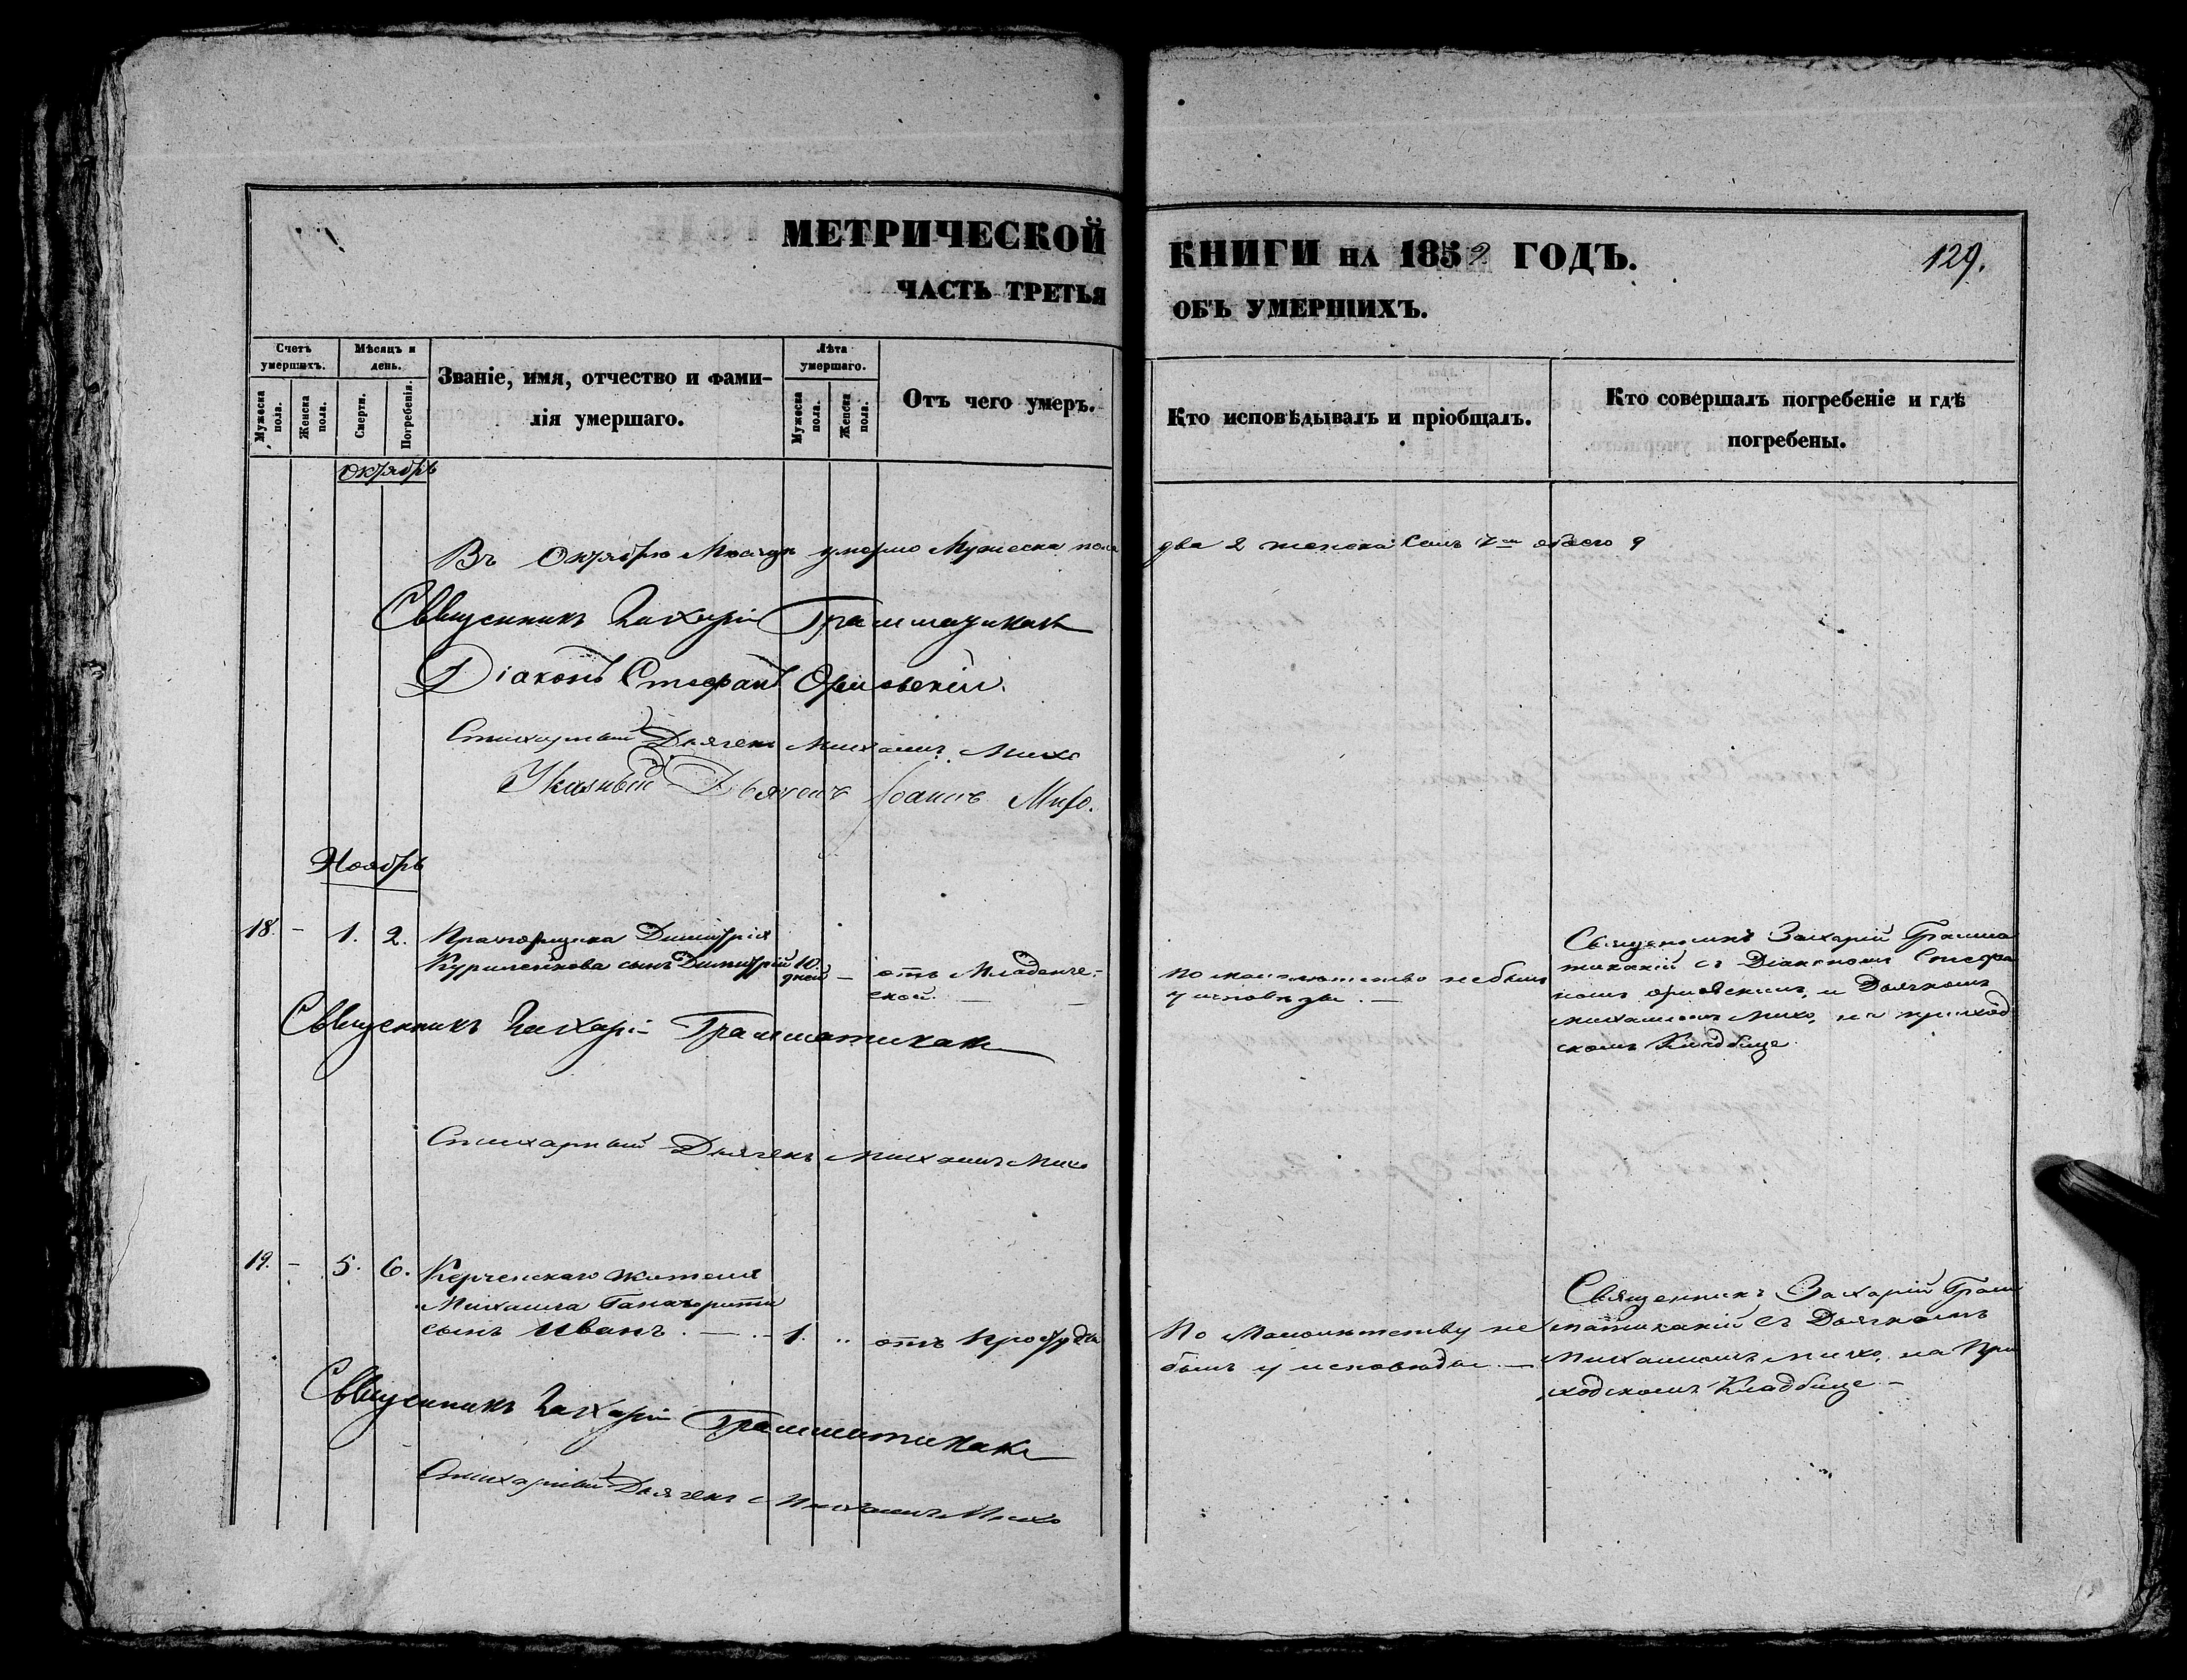 МЕТРИЧЕСКОЙ КНИГИ НА 1859 ГОДЪ.
129.
ЧАСТЬ ТРЕТЬЯ ОБЪ УМЕРШИХЪ.
Счетъ умершихъ.
Мужеска пола.
Женска пола.
Мѣсяцъ и день.
Смерти.
Погребенія.
Званіе, имя, отчество и фамилія умершаго.
Лѣта умершаго.
Мужеска пола.
Женска пола.
Отъ чего умеръ.
Кто исповѣдывалъ и пріобщалъ.
Кто совершалъ погребеніе и гдѣ погребены.
Октябрь
Въ Октябрѣ Месяцѣ умерло Мужеска пола два 2 женска Семь 7мь обоего 9
Священникъ Захарій Грамматикаки
Діаконъ Стефанъ Орловскій.
Стихарный Дьячекъ Михаилъ Михо
Указный Дьячекъ Іоаннъ
Ноябрь
18. – 1. 2.
Прапорщика Димитрія
сынъ Димитрій 10 дней –
отъ Младенче-
ской. –
По малолетству не былъ
у исповѣди. –
Священникъ Захарій Грамма
тикакій съ Діакономъ Стефа
номъ Орловскимъ, и Дьячкомъ
Михаиломъ Михо, на приход
скомъ Кладбище
Священникъ Захарій Грамматикаки
Стихарный Дьячекъ Михаилъ Михо
19. – 5. 6.
Керченскаго жителя
Михаила
сынъ Иванъ. – 1. ..
отъ простуды
По Малолетству не
былъ у исповѣди –
Священникъ Захарій Грам
матикакій съ Дьячкомъ
Михаиломъ Михо, на При
ходскомъ Кладбище –
Священникъ Захарій Грамматикаки
Стихарный Дьячекъ Михаилъ Михо